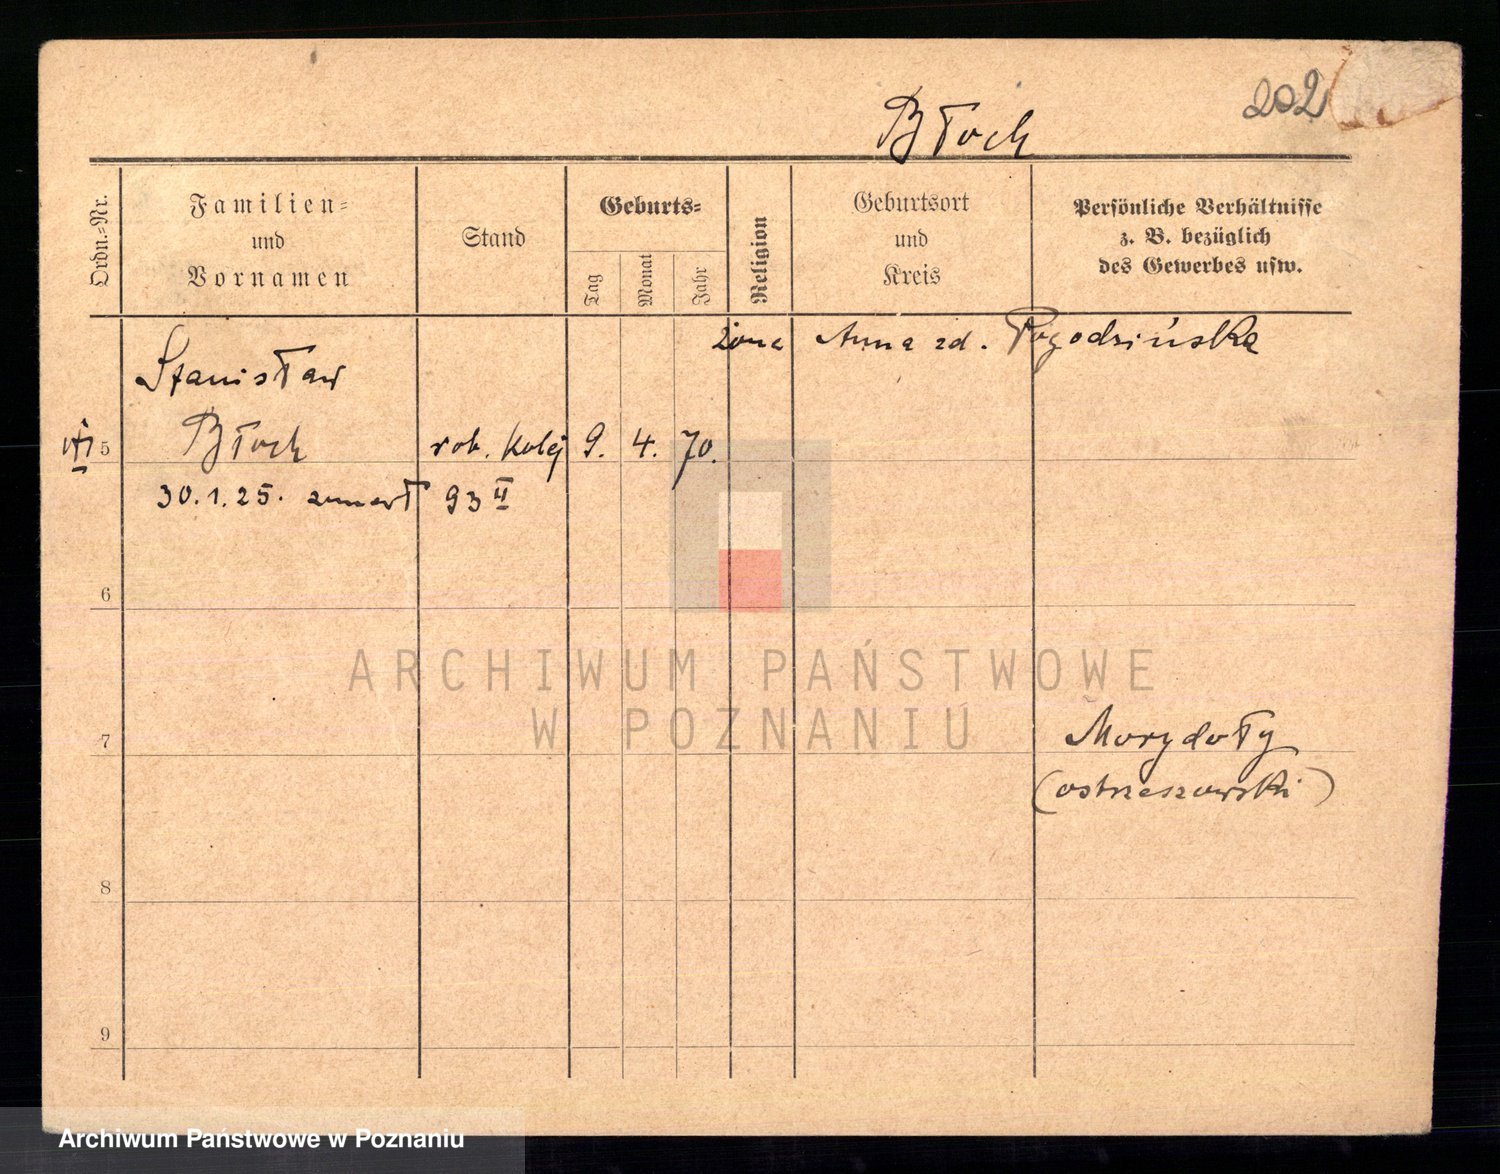 202
Błoch
Ordn.-Nr.
Familien-
und
Vornamen
Stand
Geburts-
Tag
Monat
Jahr
Religion
Geburtsort
und
Kreis
Persönliche Verhältnisse
z. B. bezüglich
des Gewerbes usw.
żona Anna zd. Pogodzińska
Stanisław
5 Błoch rob. kolej 9. 4. 70.
30.1.25. zmarł 93 II
6
ARCHIWUM PAŃSTWOWE
W POZNANIU
7 Morydoły
(ostrzeszowski)
8
9
Archiwum Państwowe w Poznaniu